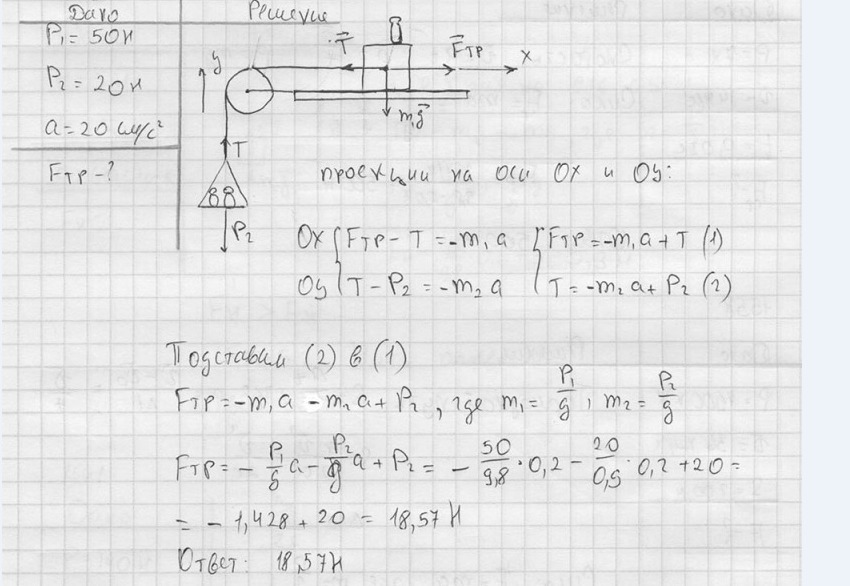 Дано Решение
P₁ = 50 н
P₂ = 20 н
a = 20 см/с²
Fтр - ?
y T⃗ F⃗тр x
m₁g⃗
T
P₂
проекции на оси Ox и Oy:
Ox { Fтр - T = -m₁a { Fтр = -m₁a + T (1)
Oy { T - P₂ = -m₂a { T = -m₂a + P₂ (2)
Подставим (2) в (1)
Fтр = -m₁a - m₂a + P₂, где m₁ = P₁/g, m₂ = P₂/g
Fтр = - P₁/g a - P₂/g a + P₂ = - 50/9,8 · 0,2 - 20/0,5 · 0,2 + 20 =
= - 1,428 + 20 = 18,57 Н
Ответ: 18,57 Н